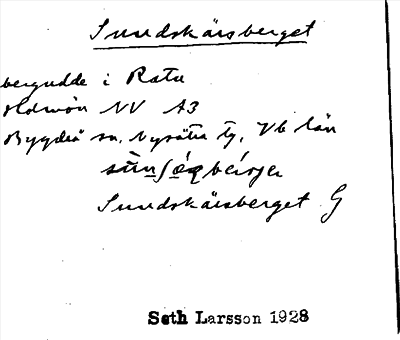 Sundskärsberget
bergudde i Ratu
Holmön NV A3
Bygdeå sn, Nysätra tg, Vb län
Sundskärsberget G
Seth Larsson 1928